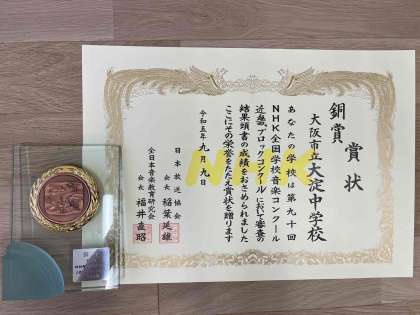 銅賞
賞状
大阪市立大淀中学校
あなたの学校は第九十回
NHK全国学校音楽コンクール
近畿ブロックコンクールにおいて審査の
結果頭書の成績をおさめられました
ここにその栄誉をたたえ賞状を贈ります
令和五年九月九日
日本放送協会
会長 稲葉延雄
全日本音楽教育研究会
会長 福井直昭
NHK